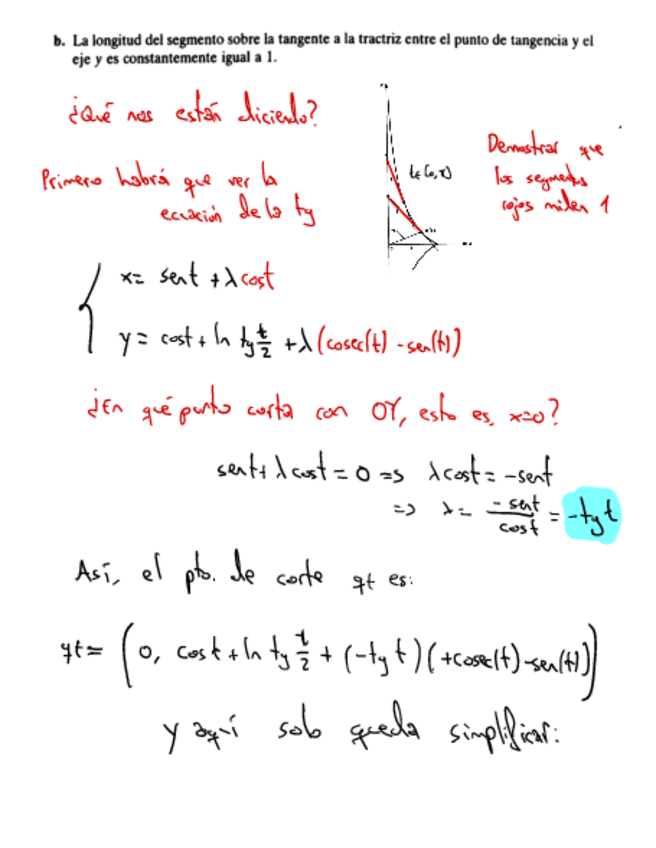 b. La longitud del segmento sobre la tangente a la tractriz entre el punto de tangencia y el
eje y es constantemente igual a 1.
¿Qué nos están diciendo?
Primero habrá que ver la
ecuación de la tg
t∈(0,π)
Demostrar que
los segmentos
rojos miden 1
x= sent + λcost
y= cost + ln tg t/2 + λ(cosec(t) - sen(t))
¿En qué punto corta con OY, esto es, x=0?
sent + λcost = 0 => λcost = -sent
=> λ = -sent/cost = -tg t
Así, el pto. de corte qt es:
qt = (0, cost + ln tg t/2 + (-tg t)(+cosec(t) - sen(t)))
y aquí solo queda simplificar: